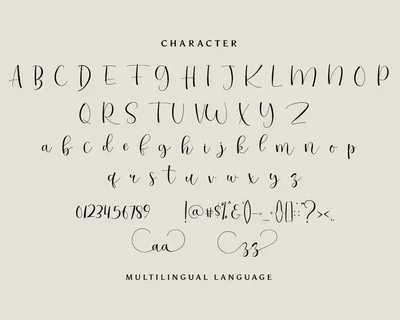 CHARACTER
A B C D E F G H I J K L M N O P
Q R S T U V W X Y Z
a b c d e f g h i j k l m n o p
q r s t u v w x y z
0123456789
aa zz
MULTILINGUAL LANGUAGE